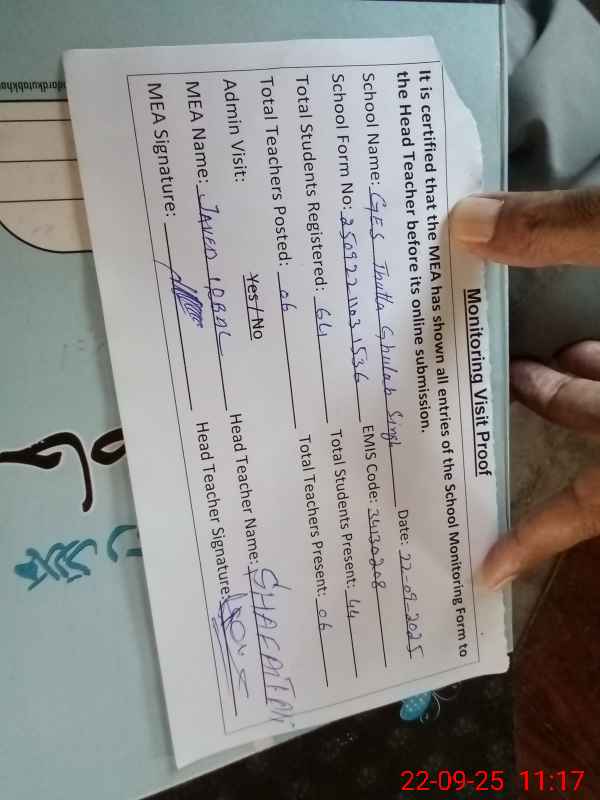 Monitoring Visit Proof
It is certified that the MEA has shown all entries of the School Monitoring Form to
the Head Teacher before its online submission.
School Name: GES Jhutta Ghulab Singh Date: 22-09-2025
School Form No: 2509221103 1536 EMIS Code: 34130208
Total Students Registered: 64 Total Students Present: 44
Total Teachers Posted: 06 Total Teachers Present: 06
Admin Visit: Yes / No
MEA Name: JAVED IQBAL Head Teacher Name:
MEA Signature: Head Teacher Signature:
22-09-25 11:17